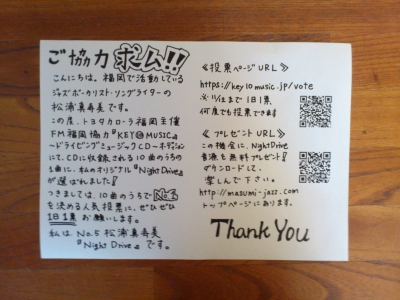 ご協力 求ム!!
こんにちは。福岡で活動している
ジャズボーカリスト・ソングライターの
松浦真寿美です。
この度、トヨタカローラ福岡主催
FM福岡協力『KEY@MUSIC』
〜ドライビングミュージックCDオーディション
にて、CDに収録される10曲のうちの
1曲に、私のオリジナル『Night Drive』
が選ばれました!
つきましては、10曲のうちでNo.1
を決める人気投票に、ぜひぜひ
1日1票お願いします。
私は No.5 松浦真寿美
『Night Drive』です。
≪投票ページURL≫
https://key10music.jp/vote
まで1日1票
何度でも投票できます
≪プレゼントURL≫
この機会に、Night Drive
音源を無料プレゼント!
ダウンロードして、
楽しんで下さい。
http://masumi-jazz.com
トップページにあります。
Thank You